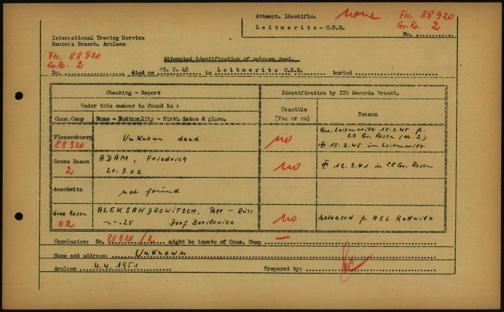 Attempt. Identific. none Flo. 88920
Leitmeritz - C.S.R. No. Gr.Ro. 2
International Tracing Service
Records Branch, Arolsen
Flo. 88920 Attempted identification of unknown dead.
Gr.Ro. 2
No. died on 15.2.45 in Leitmeritz C.S.R. buried
Checking - Report
Identification by ITS Records Branch.
Under this number is found in:
Feasible
(Yes or no)
Reason
Conc. Camp Name - Nationality - Birth dates & place.
Flossenbuerg
88920
Unknown dead
no
Leitmeritz 15.2.45 fr.
CC Gr. Rosen
+ 15.2.45 in Leitmeritz
Gross Rosen
2
ADAM, Friedrich
21.9.02
no
+ 12.9.41 in CC Gr. Rosen
Auschwitz
not found
Gross Rosen
02
ALEKSANDROWITSCH, Petr - Russ
-.-.25
no
Released fr. AEL
Conclusion: No. 88920/2 might be inmate of Conc. Camp —
Name and address: Unknown
Arolsen 4.4.1951 Prepared by: